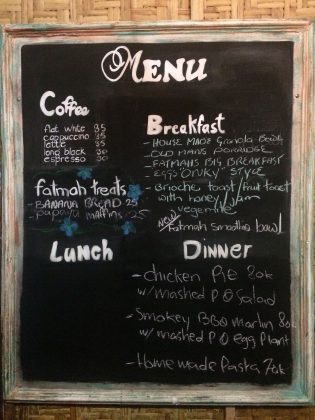 MENU
Coffee
flat white 35
cappuccino 35
latte 35
long black 30
espresso 30
fatmah treats
- BANANA BREAD 25
- papaya muffins 25
Breakfast
- HOUSE MADE Granola Bowl
- OLD MANS PORRIDGE
- FATMAHS BIG BREAKFAST
- EGGS "DINKY" STYLE
- Brioche toast/fruit toast
with honey/jam
vegemite
NEW
Fatmah smoothie bowl
Lunch
Dinner
- chicken Pie 80k
w/ mashed P & Salad
- Smokey BBQ marlin 80k
w/ mashed P & egg Plant
- Home made Pasta 70k